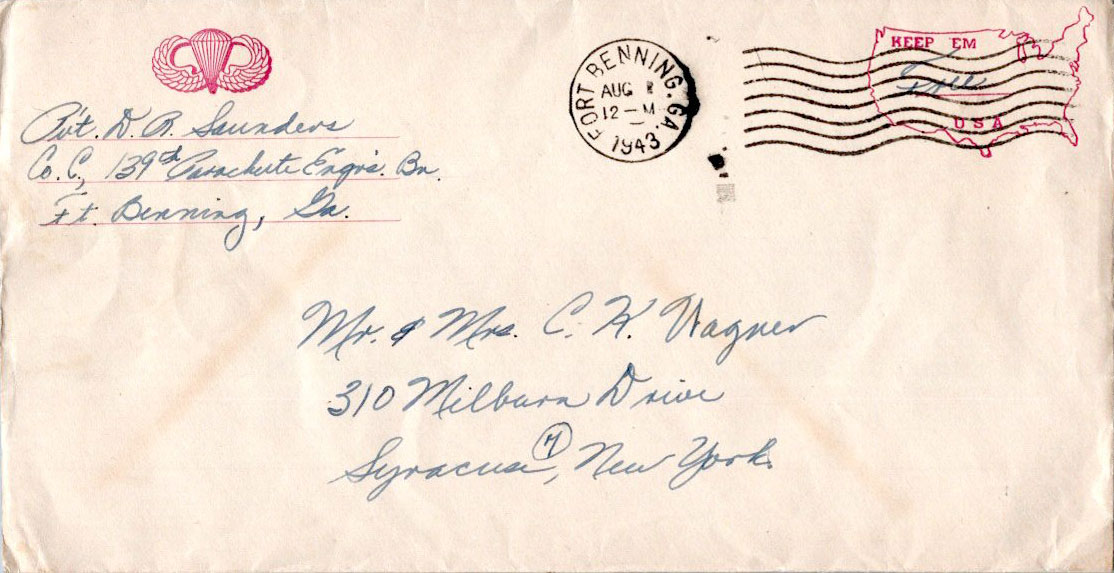 Pvt. D. B. Saunders
Co. C, 139th Parachute Engrs. Bn.
Ft. Benning, Ga.
FORT BENNING, GA.
AUG
12 - M
1943
KEEP EM
Free
USA
Mr. & Mrs. C. K. Wagner
310 Milburn Drive
Syracuse 7, New York